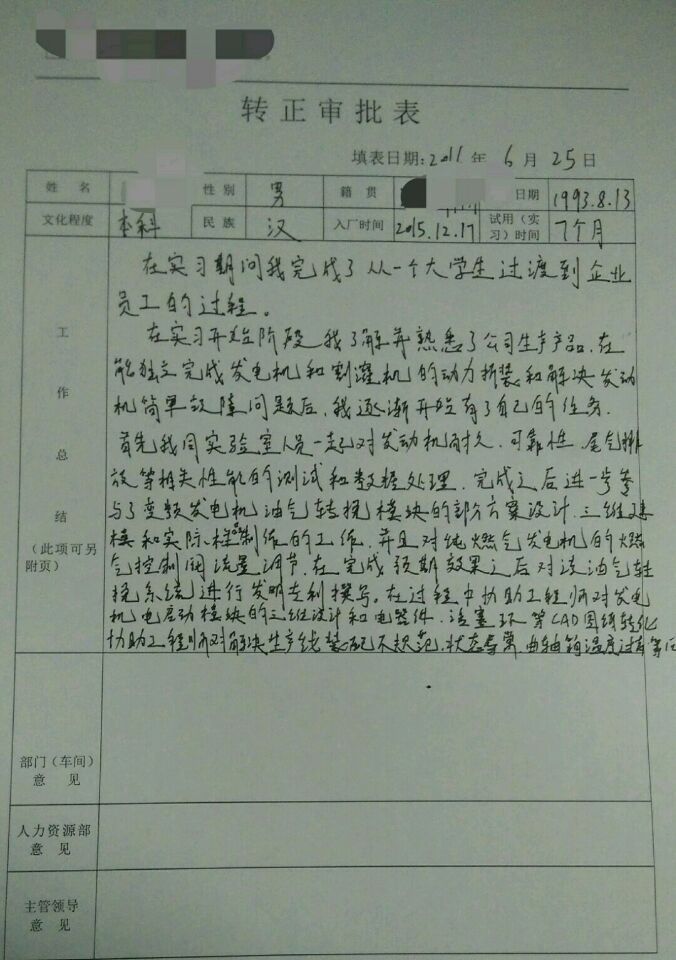 转正审批表
填表日期:2011年6月25日
姓名 性别 男 籍贯 日期 1993.8.13
文化程度 本科 民族 汉 入厂时间 2015.12.17 试用(实习)时间 7个月
工作总结
(此项可另附页)
在实习期间我完成了从一个大学生过渡到企业
员工的过程。
在实习开始阶段,我了解并熟悉了公司生产产品,在
能独立完成发电机和割灌机的动力拆装和解决发动
机简单故障问题后,我逐渐开始有了自己的任务.
首先我同实验室人员一起对发动机耐久、可靠性、尾气排
放等相关性能的测试和数据处理.完成之后进一步参
与了变频发电机油气转换模块的部分方案设计.三维建
模和实际样制作的工作,并且对纯燃气发电机的燃
气控制阀流量调节,在完成预期效果之后对该油气转
换系统进行发明专利撰写。在过程中协助工程师对发电
机电启动模块的三维设计和电器件、活塞环等CAD图纸转化
协助工程师对解决生产线装配不规范,状态异常,曲轴箱温度过高等
部门(车间)
意见
人力资源部
意见
主管领导
意见